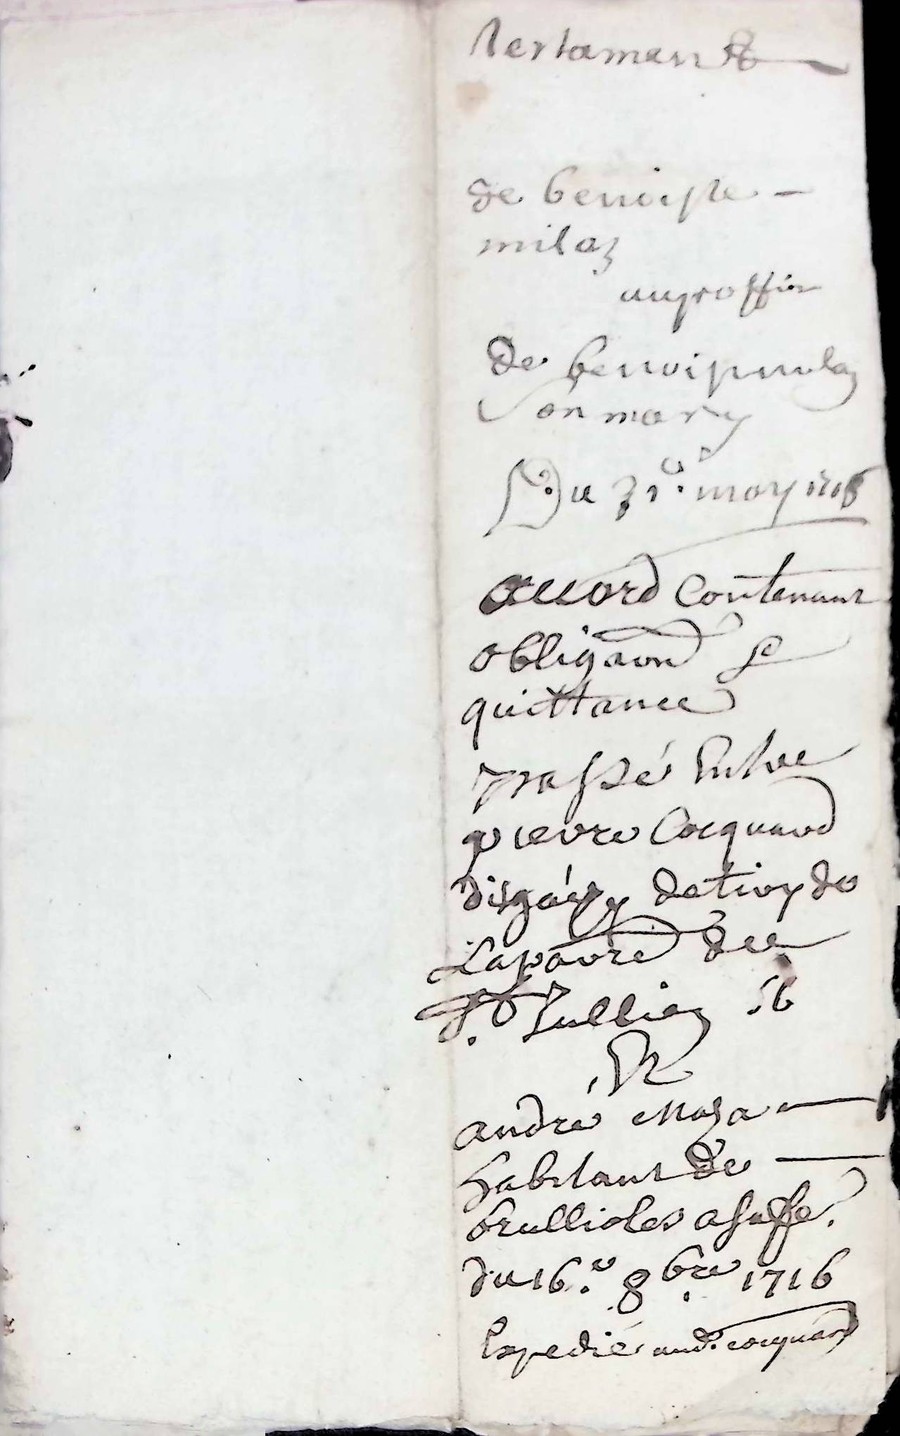 Testament
de benoiste
milaz
au proffit
de benoi
son mary
Du 31e may 1716
accord contenant
obligaon &
quittance
passé Entre
pierre Cocquard
de
Lapavre de
St Jullien
Et
andré Maza
habitant de
brullioles
du 16e 8bre 1716
Expedié aud. cocquard